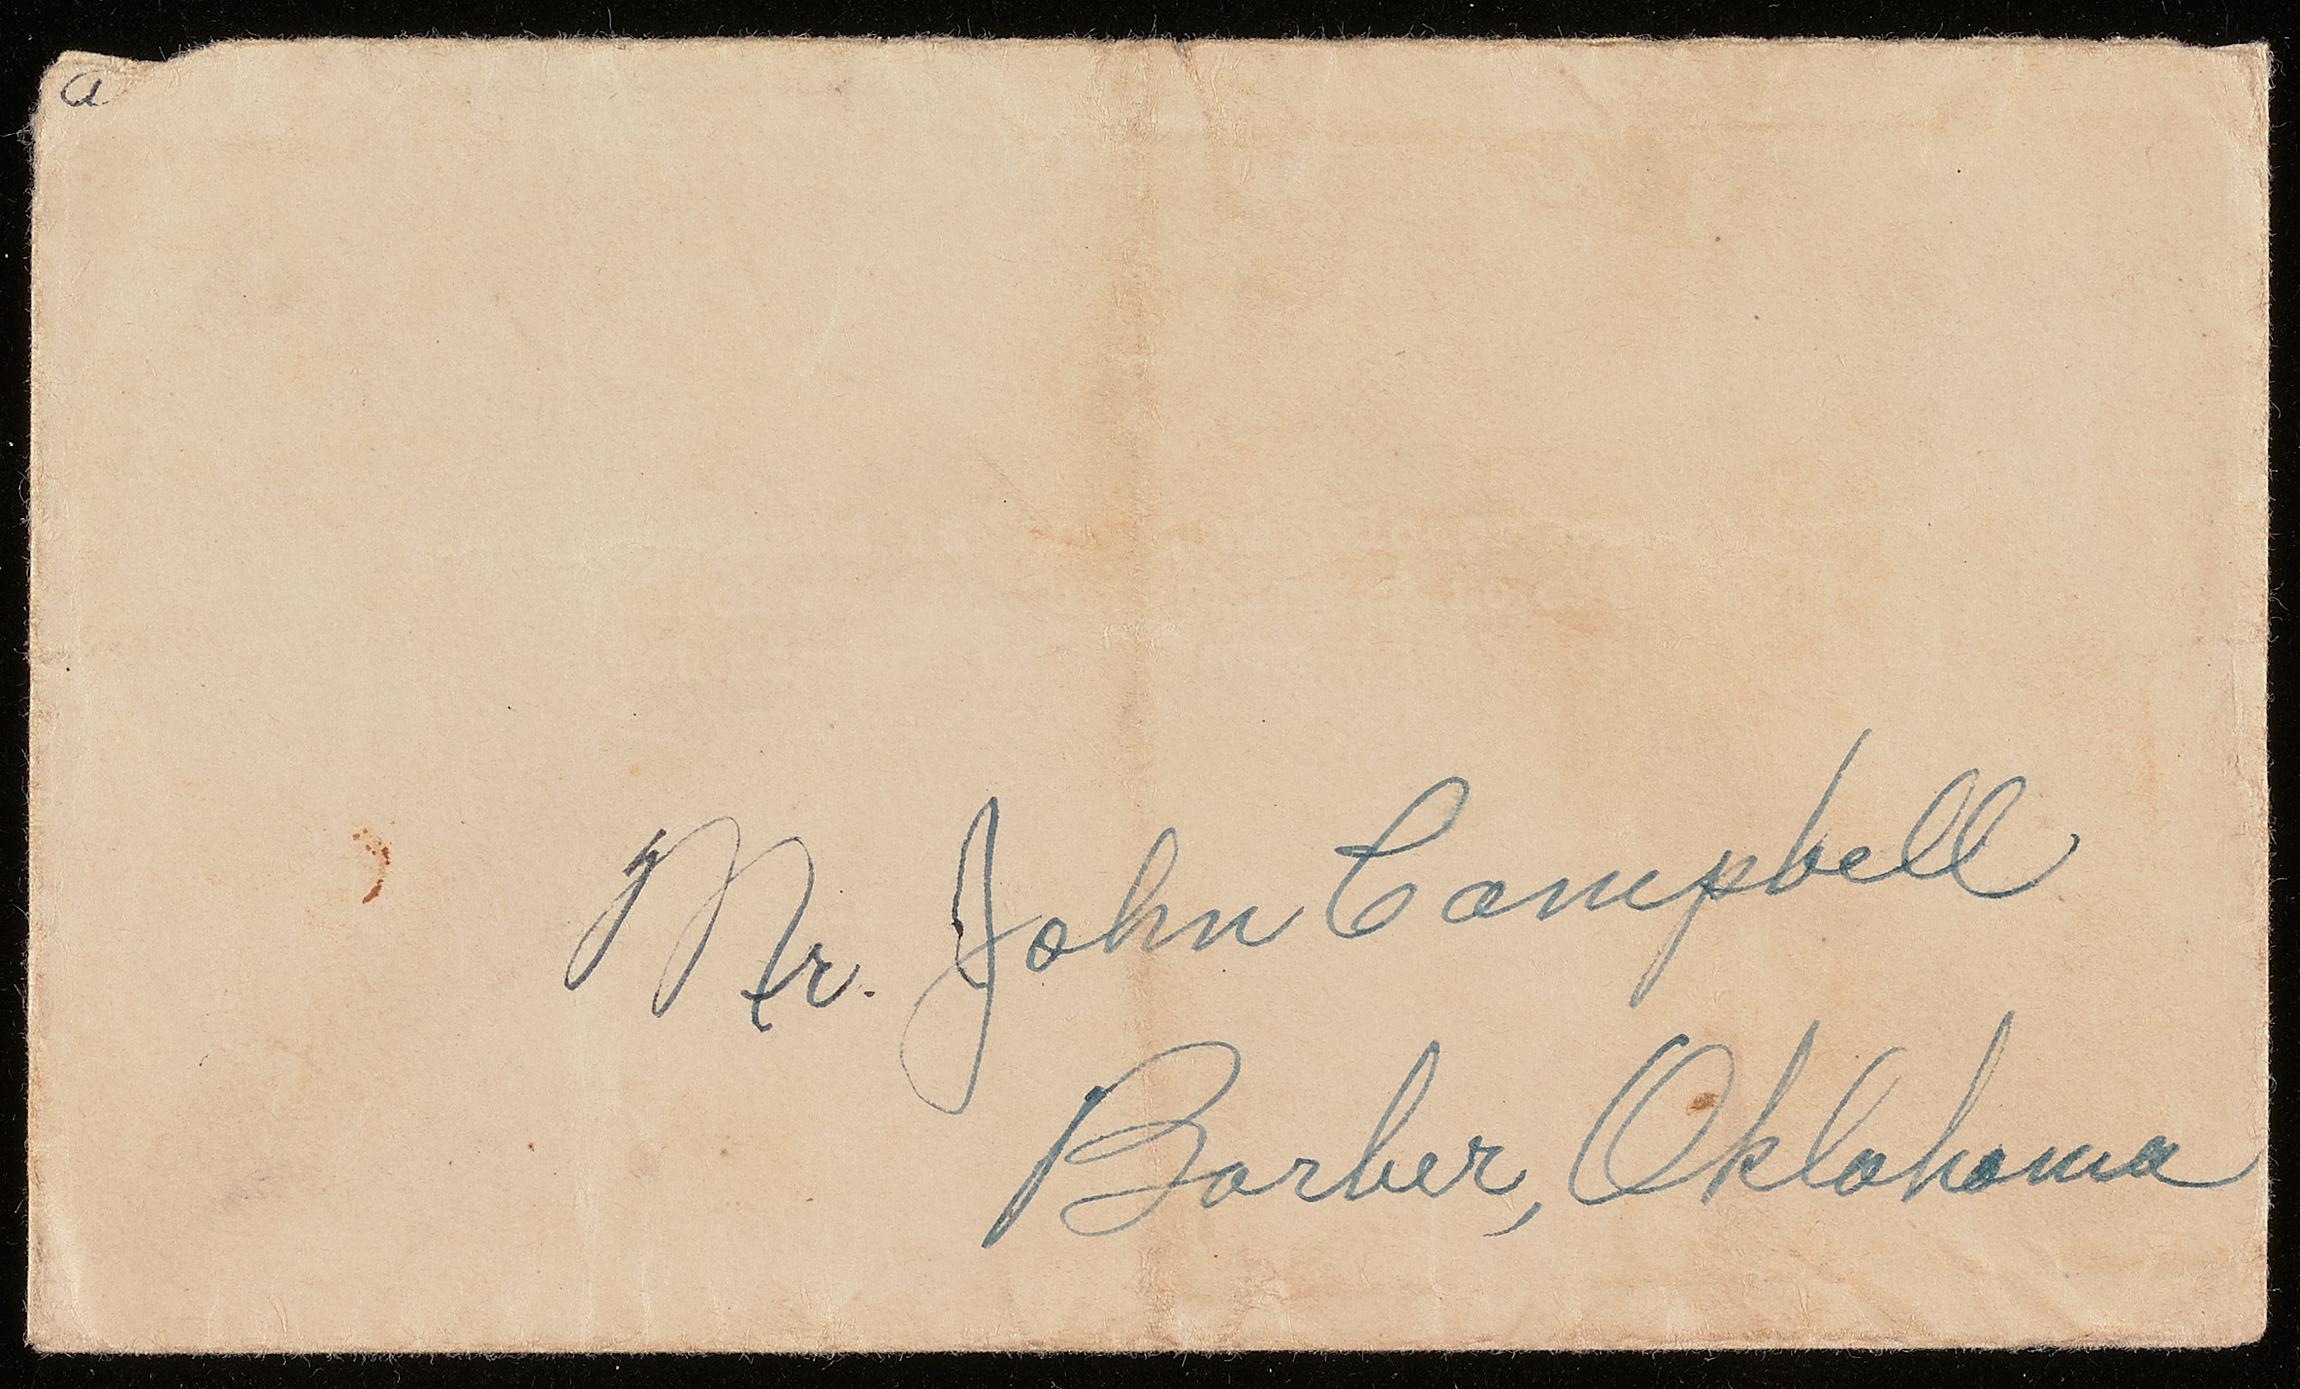 a
Mr. John Campbell
Barber, Oklahoma